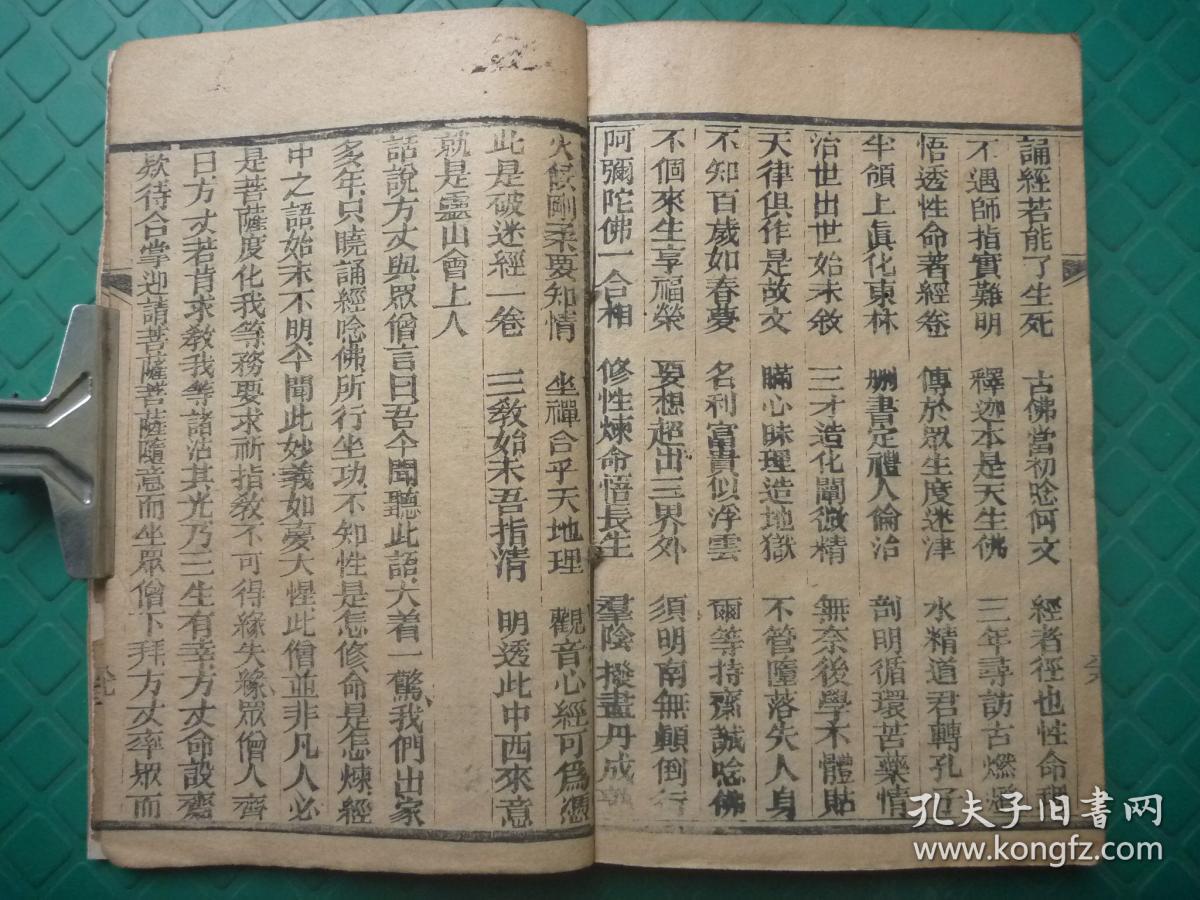 誦經若能了生死 古佛當初唸何文 經者徑也性命
不遇師指實難明 釋迦本是天生佛 三年尋訪古燃燈
悟透性命著經卷 傳於眾生度迷津 水精道君轉孔
牛領上眞化東林 刪書定禮人倫治 剖明循環苦藥情
治世出世始末敘 三才造化闡微精 無奈後學不體貼
天律俱作是故文 瞞心昧理造地獄 不管墮落失人身
不知百歲如春夢 名利富貴似浮雲 爾等持齋誠唸佛
不個來生享福榮 要想超出三界外 須明南無顛倒行
阿彌陀佛一合相 修性煉命悟長生 羣陰撥盡丹成
火候剛柔要知情 坐禪合乎天地理 觀音心經可爲憑
此是破迷經一卷 三教始末吾指清 明透此中西來意
就是靈山會上人
話說方丈與眾僧言曰吾今聞聽此語大着一驚我們出家
多年只曉誦經唸佛所行坐功不知性是怎修命是怎煉經
中之語始末不明今聞此妙義如夢大惺此僧並非凡人必
是菩薩度化我等務要求祈指教不可得緣失緣眾僧人齊
曰方丈若肯求教我等諸沾其光乃三生有幸方丈命設齋
欵待合掌迎請菩薩菩薩隨意而坐眾僧下拜方丈率眾而
孔夫子旧书网
www.kongfz.com